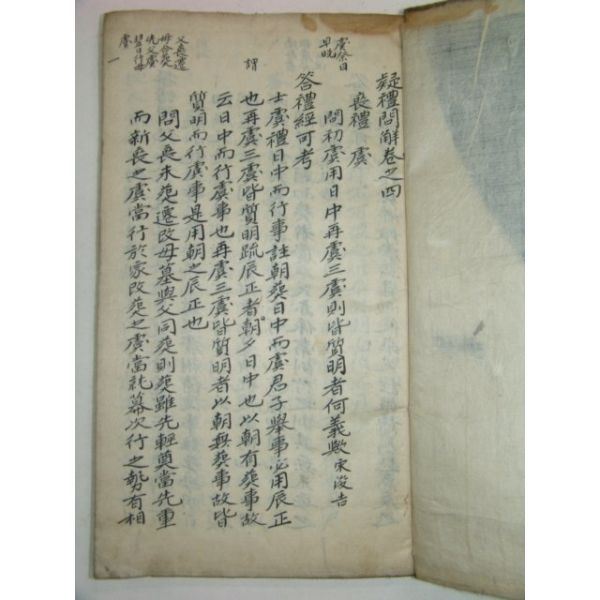 疑禮問解卷之四
喪禮 虞
虞祭日
早晚
問初虞用日中再虞三虞則皆質明者何義歟宋浚吉
答禮經可考
士虞禮日中而行事註朝葬日中而虞君子舉事必用辰正
謂
也再虞三虞皆質明疏辰正者朝夕日中也以朝有葬事故
云日中而行虞事也再虞三虞皆質明者以朝無葬事故皆
質明而行虞事是用朝之辰正也
父喪遷
母合葬
先父虞
翌日行母
虞
問父喪未葬遷改母墓與父同葬則葬雖先輕奠當先重
而新喪之虞當行於家改葬之虞當就幕次行之勢有相